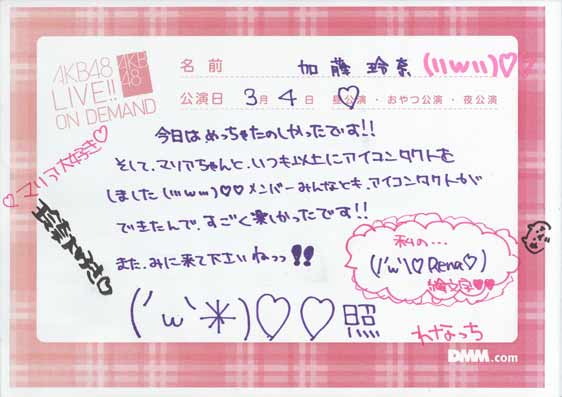 AKB48
LIVE!!
ON DEMAND
AKB
48
名前 加藤 玲奈 (ııwıı)♡♡
公演日 3月 4日 昼公演・おやつ公演・夜公演
今日はめっちゃたのしかったです!!
そして、マリアちゃんと、いつも以上にアイコンタクトを
しました(ıııwıı)♡♡メンバーみんなとも、アイコンタクトが
できたんで、すごく楽しかったです!!
また、みに来て下さいねっっ!!
(´ω`✳)♡♡照
♡マリア大好き♡
玲奈
私の…
(ı'w'ı)♡Rena♡)
絵文字♡♡
れなっち
DMM.com